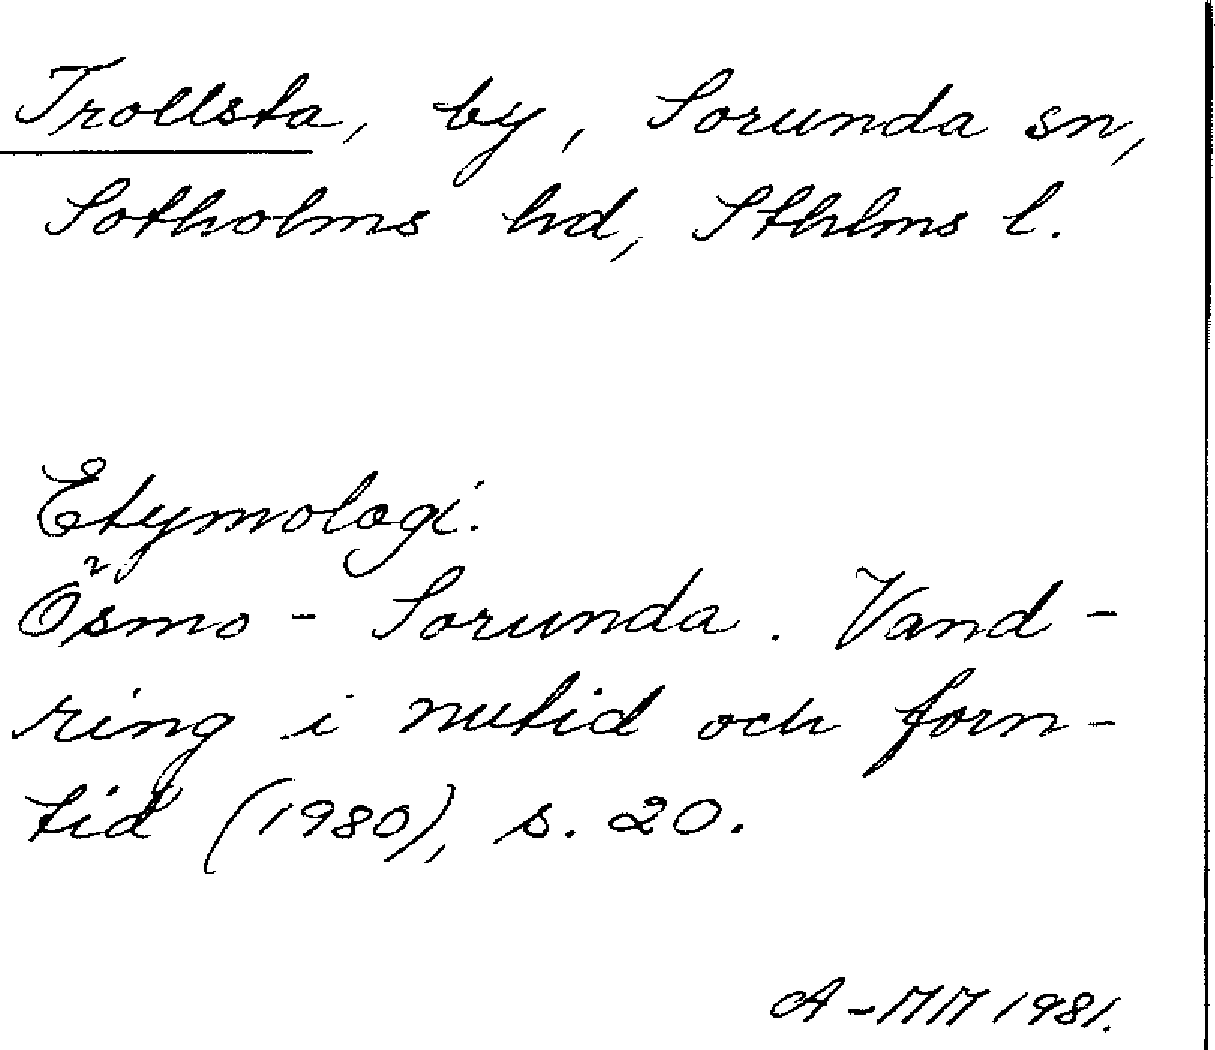 Trollsta, by, Sorunda sn,
Sotholms hd, Sthlms l.
Etymologi.
Ösmo - Sorunda. Vand-
ring i nutid och forn-
tid (1980), s. 20.
A-MM 1981.